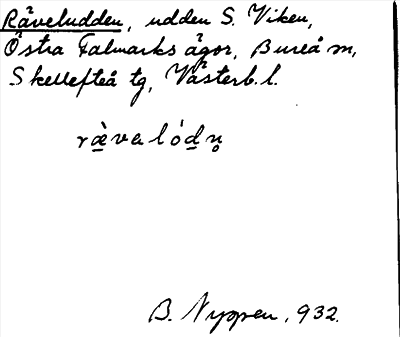 Räveludden, udden S. Viken,
Östra Falmarks ägor, Bureå m,
Skellefteå tg, Västerb. l.
ræ̀valódn̥
B. Nyqpen, 932.